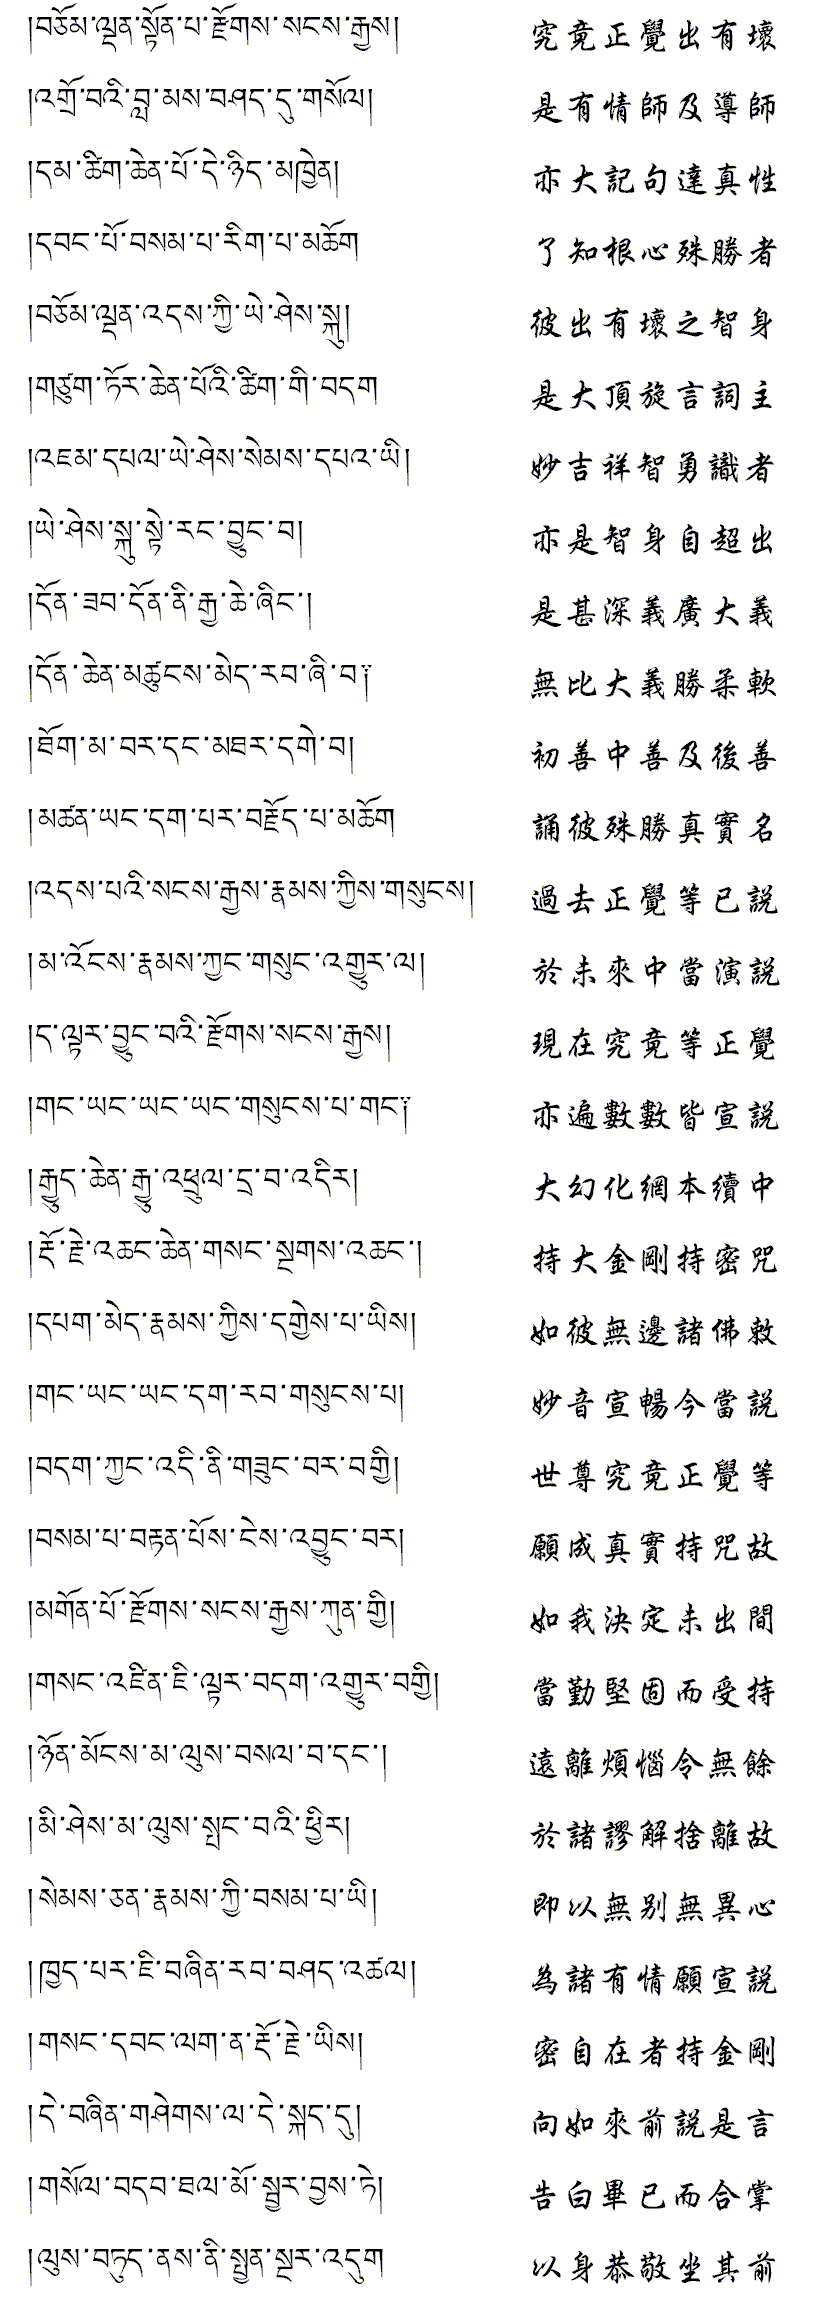 །བཅོམ་ལྡན་སྟོན་པ་རྫོགས་སངས་རྒྱས། 究竟正覺出有壞
།འགྲོ་བའི་བླ་མས་བཤད་དུ་གསོལ། 是有情師及導師
།དམ་ཚིག་ཆེན་པོ་དེ་ཉིད་མཁྱེན། 亦大記句達真性
།དབང་པོ་བསམ་པ་རིག་པ་མཆོག 了知根心殊勝者
།བཅོམ་ལྡན་འདས་ཀྱི་ཡེ་ཤེས་སྐུ། 彼出有壞之智身
།གཙུག་ཏོར་ཆེན་པོའི་ཚིག་གི་བདག 是大頂旋言詞主
།འཇམ་དཔལ་ཡེ་ཤེས་སེམས་དཔའ་ཡི། 妙吉祥智勇識者
།ཡེ་ཤེས་སྐུ་སྟེ་རང་བྱུང་བ། 亦是智身自超出
།དོན་ཟབ་དོན་ནི་རྒྱ་ཆེ་ཞིང་། 是甚深義廣大義
།དོན་ཆེན་མཚུངས་མེད་རབ་ཞི་བ༑ 無比大義勝柔軟
།ཐོག་མ་བར་དང་མཐར་དགེ་བ། 初善中善及後善
།མཚན་ཡང་དག་པར་བརྗོད་པ་མཆོག 誦彼殊勝真實名
།འདས་པའི་སངས་རྒྱས་རྣམས་ཀྱིས་གསུངས། 過去正覺等已説
།མ་འོངས་རྣམས་ཀྱང་གསུང་འགྱུར་ལ། 於未來中當演説
།ད་ལྟར་བྱུང་བའི་རྫོགས་སངས་རྒྱས། 現在究竟等正覺
།གང་ཡང་ཡང་ཡང་གསུངས་པ་གང༑ 亦遍數數皆宣説
།རྒྱུད་ཆེན་རྒྱུ་འཕྲུལ་དྲ་བ་འདིར། 大幻化網本續中
།རྡོ་རྗེ་འཆང་ཆེན་གསང་སྔགས་འཆང་། 持大金剛持密咒
།དཔག་མེད་རྣམས་ཀྱིས་དགྱེས་པ་ཡིས། 如彼無邊諸佛敕
།གང་ཡང་ཡང་དག་རབ་གསུངས་པ། 妙音宣暢今當説
།བདག་ཀྱང་འདི་ནི་གཟུང་བར་བགྱི། 世尊究竟正覺等
།བསམ་པ་བརྟན་པོས་ངེས་འབྱུང་བར། 願成真實持咒故
།མགོན་པོ་རྫོགས་སངས་རྒྱས་ཀུན་གྱི། 如我決定未出間
།གསང་འཛིན་ཇི་ལྟར་བདག་འགྱུར་བགྱི། 當勤堅固而受持
།ཉོན་མོངས་མ་ལུས་བསལ་བ་དང་། 遠離煩惱令無餘
།མི་ཤེས་མ་ལུས་སྤང་བའི་ཕྱིར། 於諸謬解捨離故
།སེམས་ཅན་རྣམས་ཀྱི་བསམ་པ་ཡི། 即以無別無異心
།ཁྱད་པར་ཇི་བཞིན་རབ་བཤད་འཚལ། 為諸有情願宣説
།གསང་དབང་ལག་ན་རྡོ་རྗེ་ཡིས། 密自在者持金剛
།དེ་བཞིན་གཤེགས་ལ་དེ་སྐད་དུ། 向如來前説是言
།གསོལ་བདབ་ཐལ་མོ་སྦྱར་བྱས་ཏེ། 告白畢已而合掌
།ལུས་བཏུད་ནས་ནི་སྤྱན་སྔར་འདུག 以身恭敬坐其前